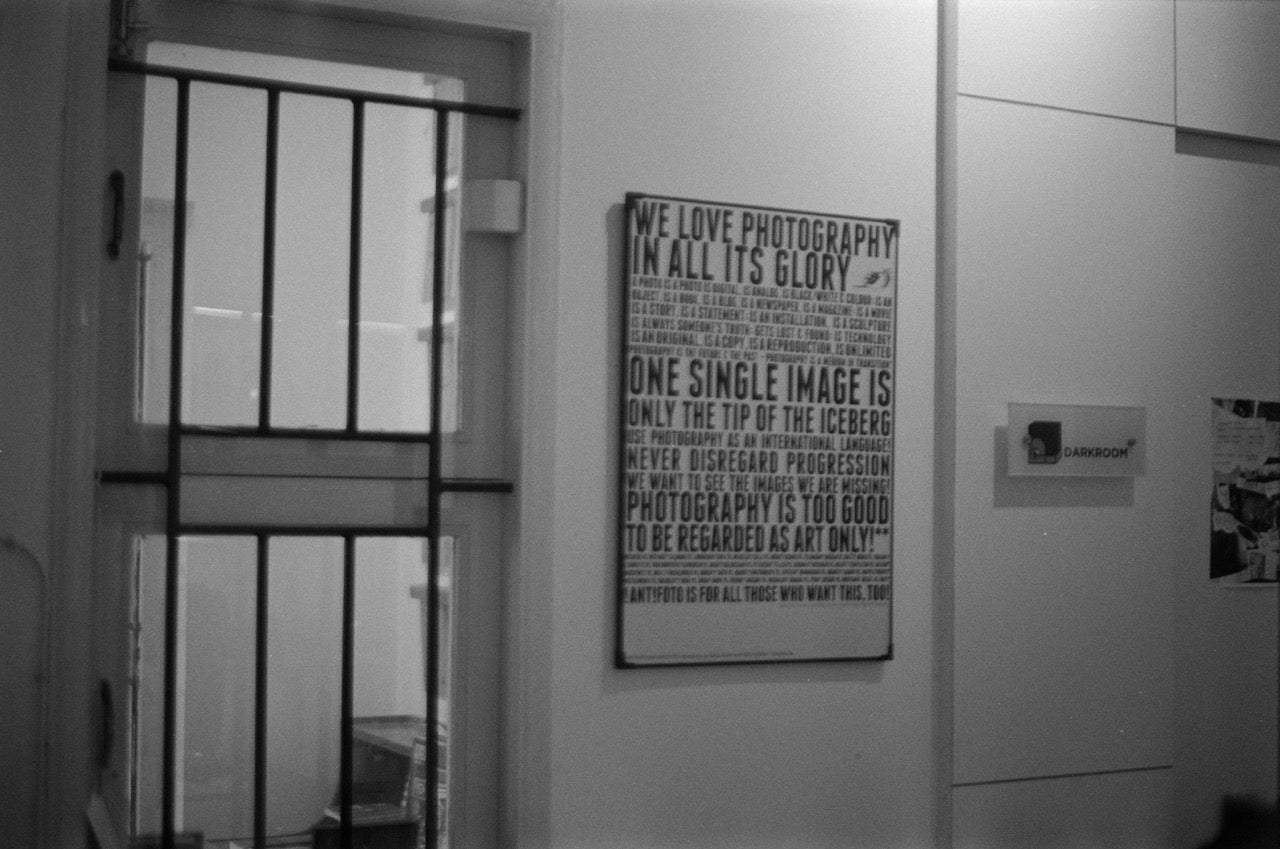 WE LOVE PHOTOGRAPHY
IN ALL ITS GLORY
A PHOTO IS A PHOTO IS DIGITAL, IS ANALOG, IS BLACK/WHITE & COLOUR; IS AN
OBJECT, IS A BOOK, IS A BLOG, IS A NEWSPAPER, IS A MAGAZINE; IS A MOVIE
IS A STORY, IS A STATEMENT; IS AN INSTALLATION, IS A SCULPTURE
IS ALWAYS SOMEONE'S TRUTH; GETS LOST & FOUND; IS TECHNOLOGY
IS AN ORIGINAL, IS A COPY, IS A REPRODUCTION, IS UNLIMITED
PHOTOGRAPHY IS THE FUTURE & THE PAST - PHOTOGRAPHY IS A MEDIUM IN TRANSITION!
ONE SINGLE IMAGE IS
ONLY THE TIP OF THE ICEBERG
USE PHOTOGRAPHY AS AN INTERNATIONAL LANGUAGE!
NEVER DISREGARD PROGRESSION
WE WANT TO SEE THE IMAGES WE ARE MISSING!
PHOTOGRAPHY IS TOO GOOD
TO BE REGARDED AS ART ONLY!**
!ANT!FOTO IS FOR ALL THOSE WHO WANT THIS, TOO!
DARKROOM